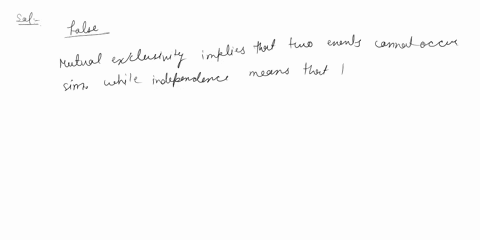 Sol-
False
Mutual exclusivity implies that two events cannot occur
sim. while independence means that |